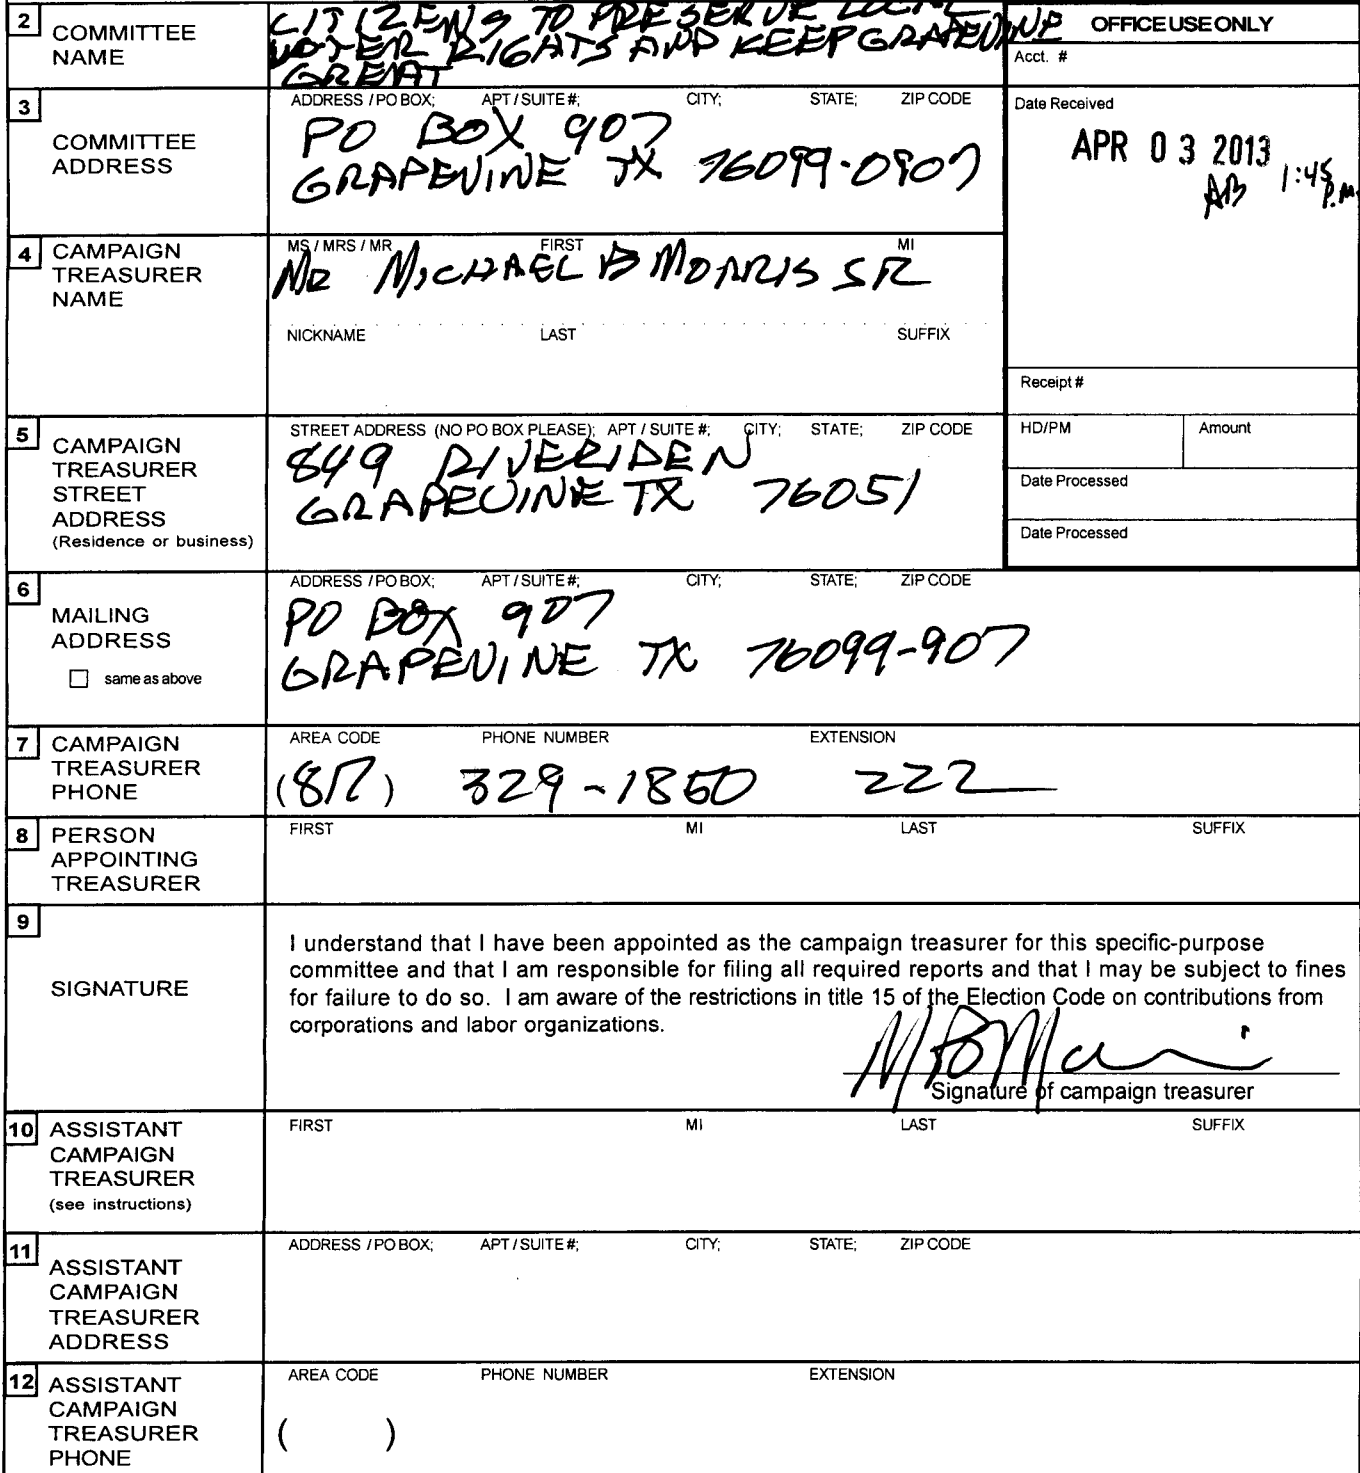 2 COMMITTEE NAME
CITIZENS TO PRESERVE LOCAL
VOTER RIGHTS AND KEEP GRAPEVINE
GREAT
OFFICE USE ONLY
Acct. #
Date Received
APR 03 2013
AB 1:45 P.M.
Receipt #
HD/PM Amount
Date Processed
Date Processed
3 COMMITTEE ADDRESS
ADDRESS / PO BOX; APT / SUITE #; CITY; STATE; ZIP CODE
PO BOX 907
GRAPEVINE TX 76099-0907
4 CAMPAIGN TREASURER NAME
MS / MRS / MR FIRST MI
MR MICHAEL B MORRIS SR
NICKNAME LAST SUFFIX
5 CAMPAIGN TREASURER STREET ADDRESS
(Residence or business)
STREET ADDRESS (NO PO BOX PLEASE); APT / SUITE #; CITY; STATE; ZIP CODE
849
GRAPEVINE TX 76051
6 MAILING ADDRESS
same as above
ADDRESS / PO BOX; APT / SUITE #; CITY; STATE; ZIP CODE
PO BOX 907
GRAPEVINE TX 76099-907
7 CAMPAIGN TREASURER PHONE
AREA CODE PHONE NUMBER EXTENSION
(817) 329-1850 222
8 PERSON APPOINTING TREASURER
FIRST MI LAST SUFFIX
9 SIGNATURE
I understand that I have been appointed as the campaign treasurer for this specific-purpose
committee and that I am responsible for filing all required reports and that I may be subject to fines
for failure to do so. I am aware of the restrictions in title 15 of the Election Code on contributions from
corporations and labor organizations.
Signature of campaign treasurer
10 ASSISTANT CAMPAIGN TREASURER
(see instructions)
FIRST MI LAST SUFFIX
11 ASSISTANT CAMPAIGN TREASURER ADDRESS
ADDRESS / PO BOX; APT / SUITE #; CITY; STATE; ZIP CODE
12 ASSISTANT CAMPAIGN TREASURER PHONE
AREA CODE PHONE NUMBER EXTENSION
( )